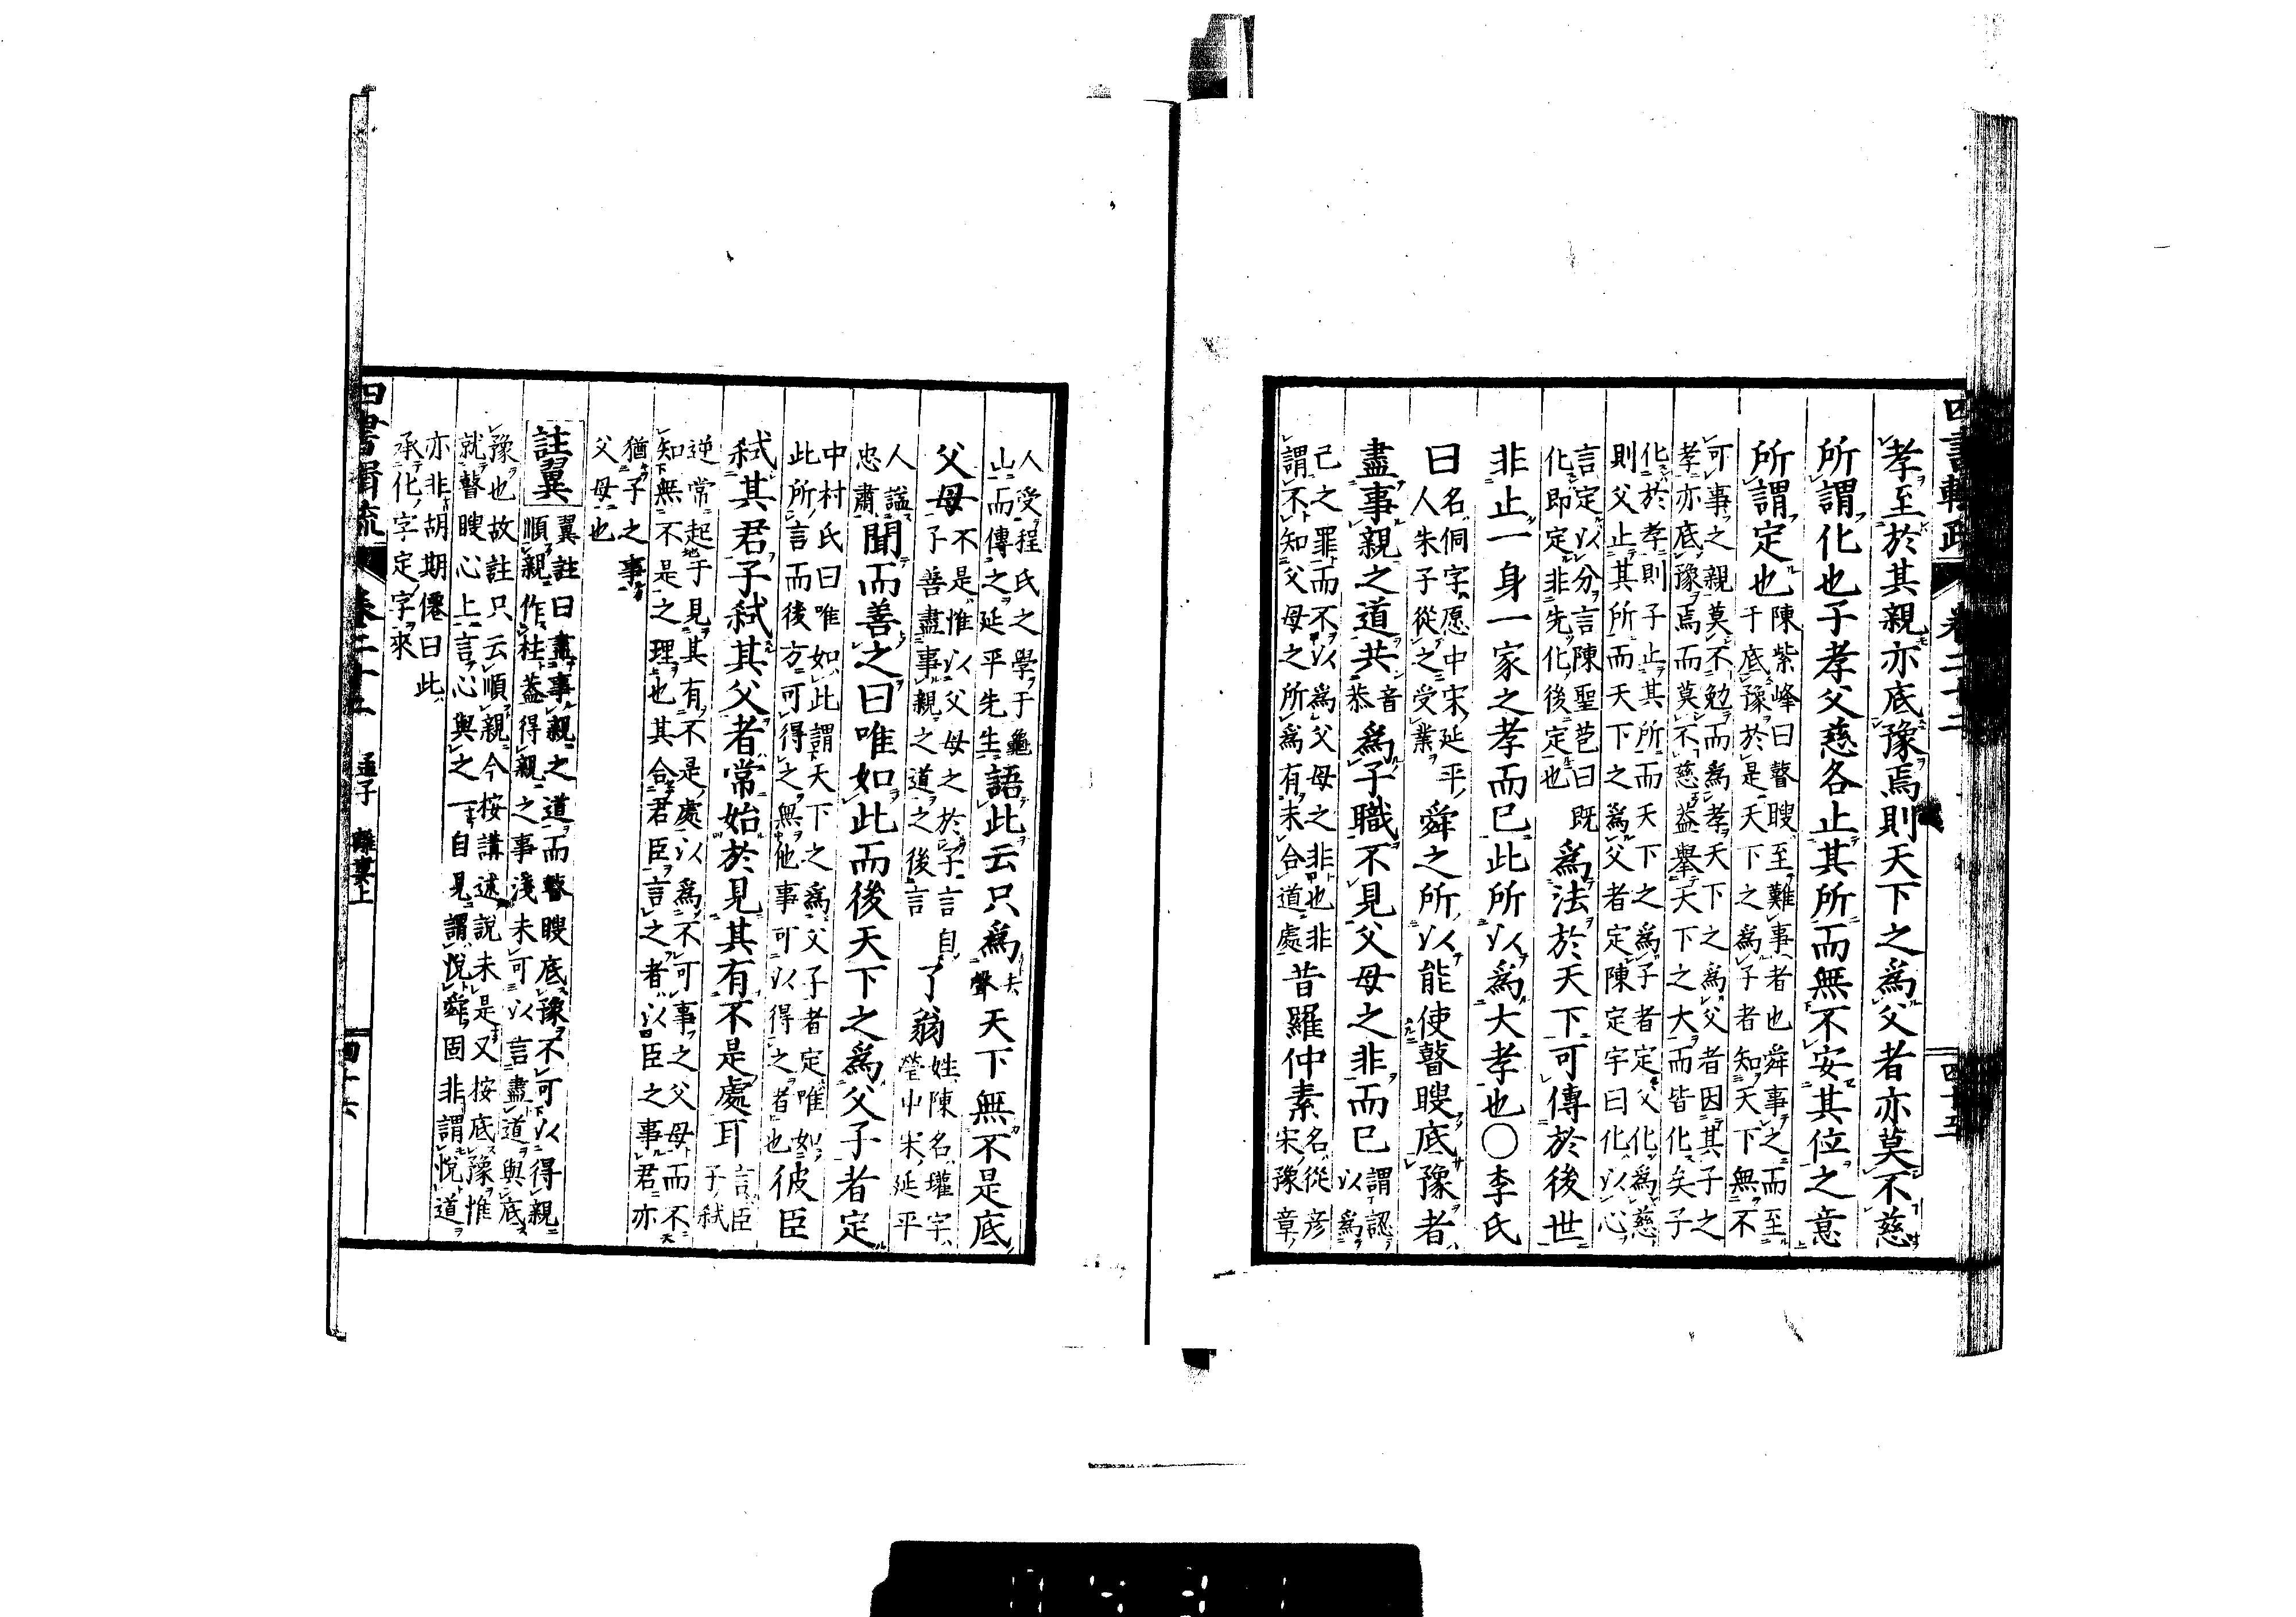 四書輯疏 卷二十二 四十五
孝至於其親亦底豫焉則天下之爲父者亦莫不慈
所謂化也子孝父慈各止其所而無不安其位之意
所謂定也陳紫峰曰瞽瞍至難事者也舜事之而至
于底豫於是天下之爲子者知天下無不
可事之親莫不勉而爲孝天下之爲父者因其子之
孝亦底豫焉而莫不慈蓋舉天下之大而皆化矣子
化於孝則子止其所而天下之爲子者定父化爲慈
則父止其所而天下之爲父者定陳定宇曰化以心
言定以分言陳聖苞曰既
化即定非先化後定也爲法於天下可傳於後世
非止一身一家之孝而已此所以爲大孝也〇李氏
曰名侗字愿中宋延平
人朱子從之受業舜之所以能使瞽瞍底豫者
盡事親之道共音恭爲子職不見父母之非而已謂認
以爲
己之罪而不以爲父母之非也非
謂不知父母之所爲有未合道處昔羅仲素名從彦
宋豫章
人受程氏之學于龜
山而傳之延平先生語此云只爲去聲天下無不是底
父母不是惟以父母之於子言自
子善盡事親之道之後言了翁姓陳名瓘字
瑩中宋延平
人謚
忠肅聞而善之曰唯如此而後天下之爲父子者定
中村氏曰唯如此謂天下之爲父子者定唯如
此所言而後方可得之無他事可以得之者也彼臣
弑其君子弑其父者常始於見其有不是處耳言臣
子弑
逆常起于見其有不是處以爲不可事之父母而不
知無不是之理也其合君臣言之者以臣之事君亦
猶子之事
父母也
註翼翼註曰盡事親之道而瞽瞍底豫不可以得親
順親作柱蓋得親之事淺未可以言盡道與底
豫也故註只云順親今按講述說未是又按底豫惟
就瞽瞍心上言心與之一自見謂悅舜固非謂悅道
亦非胡期僊曰此
承化字定字來
四書輯疏 卷二十二 孟子 離婁上 四十六